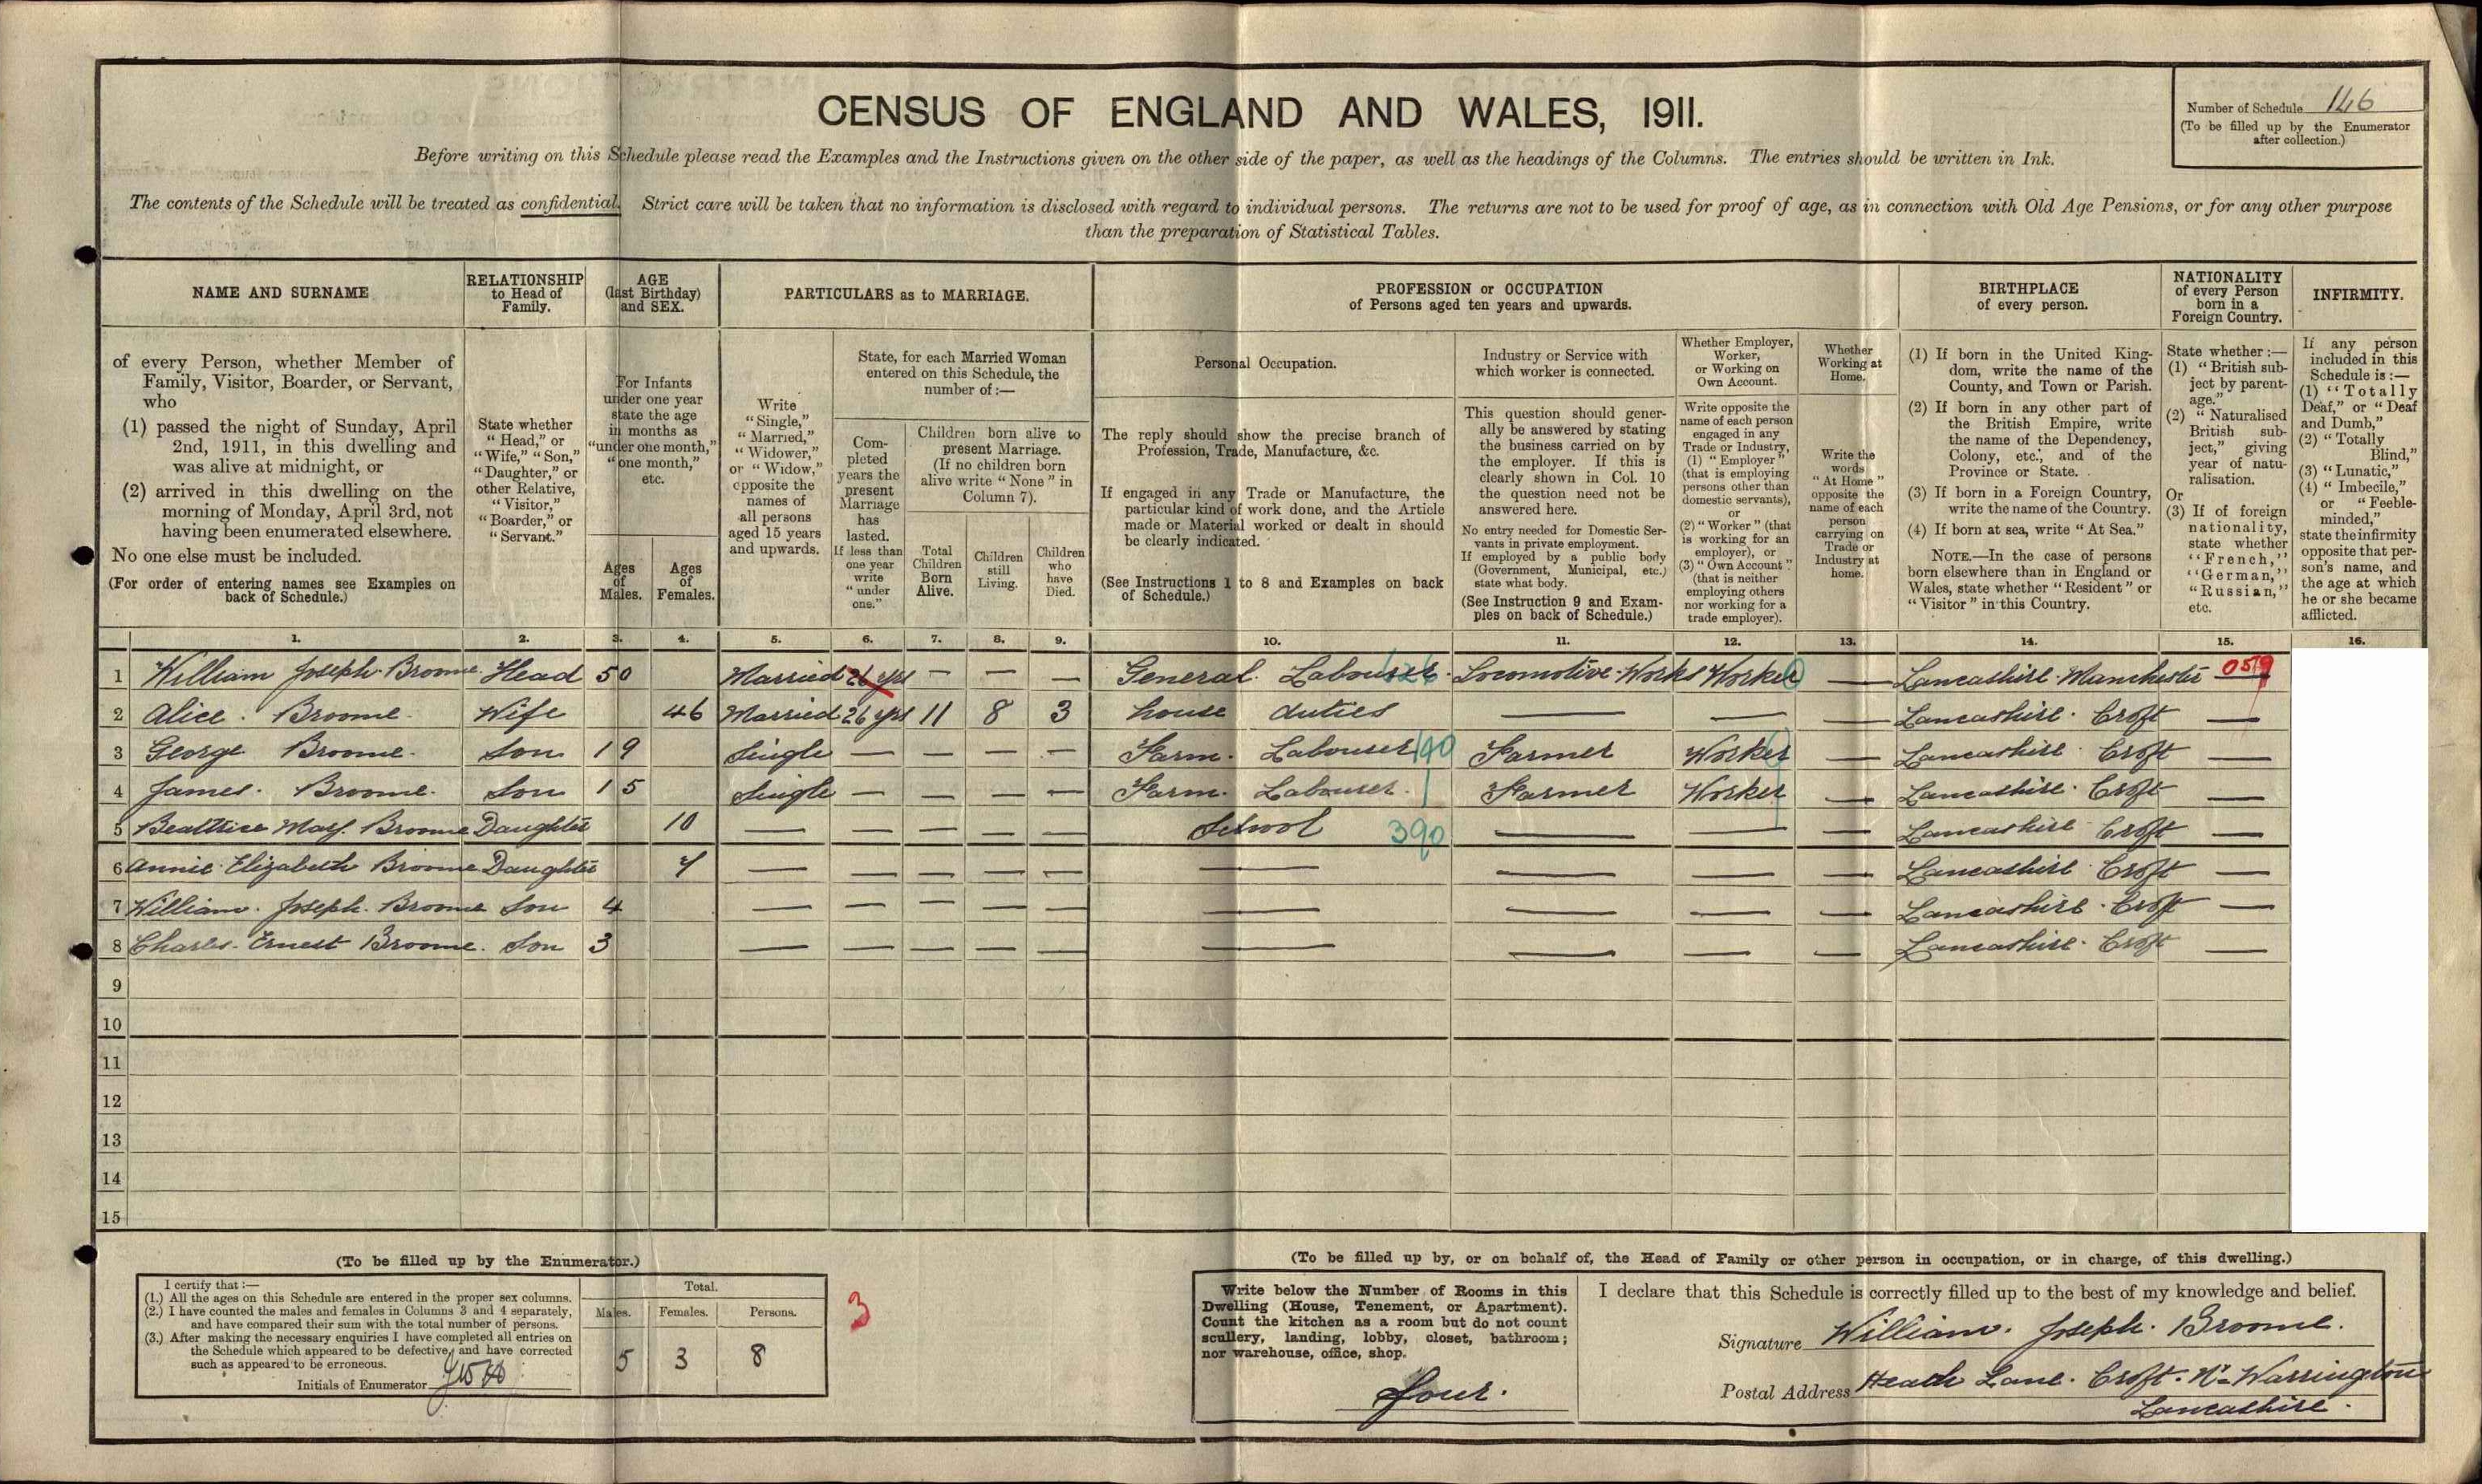 CENSUS OF ENGLAND AND WALES, 1911.
Number of Schedule 146
(To be filled up by the Enumerator
after collection.)
Before writing on this Schedule please read the Examples and the Instructions given on the other side of the paper, as well as the headings of the Columns. The entries should be written in Ink.
The contents of the Schedule will be treated as confidential. Strict care will be taken that no information is disclosed with regard to individual persons. The returns are not to be used for proof of age, as in connection with Old Age Pensions, or for any other purpose
than the preparation of Statistical Tables.
NAME AND SURNAME
of every Person, whether Member of
Family, Visitor, Boarder, or Servant,
who
(1) passed the night of Sunday, April
2nd, 1911, in this dwelling and
was alive at midnight, or
(2) arrived in this dwelling on the
morning of Monday, April 3rd, not
having been enumerated elsewhere.
No one else must be included.
(For order of entering names see Examples on
back of Schedule.)
RELATIONSHIP
to Head of
Family.
State whether
"Head," or
"Wife," "Son,"
"Daughter," or
other Relative,
"Visitor,"
"Boarder," or
"Servant."
AGE
(last Birthday)
and SEX.
For Infants
under one year
state the age
in months as
"under one month,"
"one month,"
etc.
Ages
of
Males.
Ages
of
Females.
PARTICULARS as to MARRIAGE.
Write
"Single,"
"Married,"
"Widower,"
or "Widow,"
opposite the
names of
all persons
aged 15 years
and upwards.
State, for each Married Woman
entered on this Schedule, the
number of :—
Com-
pleted
years the
present
Marriage
has
lasted.
If less than
one year
write
"under
one."
Children born alive to
present Marriage.
(If no children born
alive write "None" in
Column 7).
Total
Children
Born
Alive.
Children
still
Living.
Children
who
have
Died.
PROFESSION or OCCUPATION
of Persons aged ten years and upwards.
Personal Occupation.
The reply should show the precise branch of
Profession, Trade, Manufacture, &c.
If engaged in any Trade or Manufacture, the
particular kind of work done, and the Article
made or Material worked or dealt in should
be clearly indicated.
(See Instructions 1 to 8 and Examples on back
of Schedule.)
Industry or Service with
which worker is connected.
This question should gener-
ally be answered by stating
the business carried on by
the employer. If this is
clearly shown in Col. 10
the question need not be
answered here.
No entry needed for Domestic Ser-
vants in private employment.
If employed by a public body
(Government, Municipal, etc.)
state what body.
(See Instruction 9 and Exam-
ples on back of Schedule.)
Whether Employer,
Worker,
or Working on
Own Account.
Write opposite the
name of each person
engaged in any
Trade or Industry,
(1) "Employer"
(that is employing
persons other than
domestic servants),
or
(2) "Worker" (that
is working for an
employer), or
(3) "Own Account"
(that is neither
employing others
nor working for a
trade employer).
Whether
Working at
Home.
Write the
words
"At Home"
opposite the
name of each
person
carrying on
Trade or
Industry at
home.
BIRTHPLACE
of every person.
(1) If born in the United King-
dom, write the name of the
County, and Town or Parish.
(2) If born in any other part of
the British Empire, write
the name of the Dependency,
Colony, etc., and of the
Province or State.
(3) If born in a Foreign Country,
write the name of the Country.
(4) If born at sea, write "At Sea."
NOTE.—In the case of persons
born elsewhere than in England or
Wales, state whether "Resident" or
"Visitor" in this Country.
NATIONALITY
of every Person
born in a
Foreign Country.
State whether :—
(1) "British sub-
ject by parent-
age."
(2) "Naturalised
British sub-
ject," giving
year of natu-
ralisation.
Or
(3) If of foreign
nationality,
state whether
"French,"
"German,"
"Russian,"
etc.
INFIRMITY.
If any person
included in this
Schedule is :—
(1) "Totally
Deaf," or "Deaf
and Dumb,"
(2) "Totally
Blind,"
(3) "Lunatic,"
(4) "Imbecile,"
or "Feeble-
minded,"
state the infirmity
opposite that per-
son's name, and
the age at which
he or she became
afflicted.
1. 2. 3. 4. 5. 6. 7. 8. 9. 10. 11. 12. 13. 14. 15. 16.
1 William Joseph Broome Head 50 Married 26 yrs — — — General Labourer Locomotive Works Worker — Lancashire Manchester 059
2 Alice Broome Wife 46 Married 26 yrs 11 8 3 house duties — — — Lancashire Croft —
3 George Broome Son 19 Single — — — — Farm Labourer 190 Farmer Worker — Lancashire Croft —
4 James Broome Son 15 Single — — — — Farm Labourer Farmer Worker — Lancashire Croft —
5 Beattrice Mary Broome Daughter 10 — — — — — School 390 — — — Lancashire Croft —
6 Annie Elizabeth Broome Daughter 7 — — — — — — — — — Lancashire Croft —
7 William Joseph Broome Son 4 — — — — — — — — — Lancashire Croft —
8 Charles Ernest Broome Son 3 — — — — — — — — — Lancashire Croft —
9
10
11
12
13
14
15
(To be filled up by the Enumerator.)
I certify that :—
(1.) All the ages on this Schedule are entered in the proper sex columns.
(2.) I have counted the males and females in Columns 3 and 4 separately,
and have compared their sum with the total number of persons.
(3.) After making the necessary enquiries I have completed all entries on
the Schedule which appeared to be defective, and have corrected
such as appeared to be erroneous.
Initials of Enumerator
Total.
Males. Females. Persons.
5 3 8
3
(To be filled up by, or on behalf of, the Head of Family or other person in occupation, or in charge, of this dwelling.)
Write below the Number of Rooms in this
Dwelling (House, Tenement, or Apartment).
Count the kitchen as a room but do not count
scullery, landing, lobby, closet, bathroom;
nor warehouse, office, shop.
four.
I declare that this Schedule is correctly filled up to the best of my knowledge and belief.
Signature William. Joseph. Broome.
Postal Address Heath Lane. Croft. Nr Warrington
Lancashire.